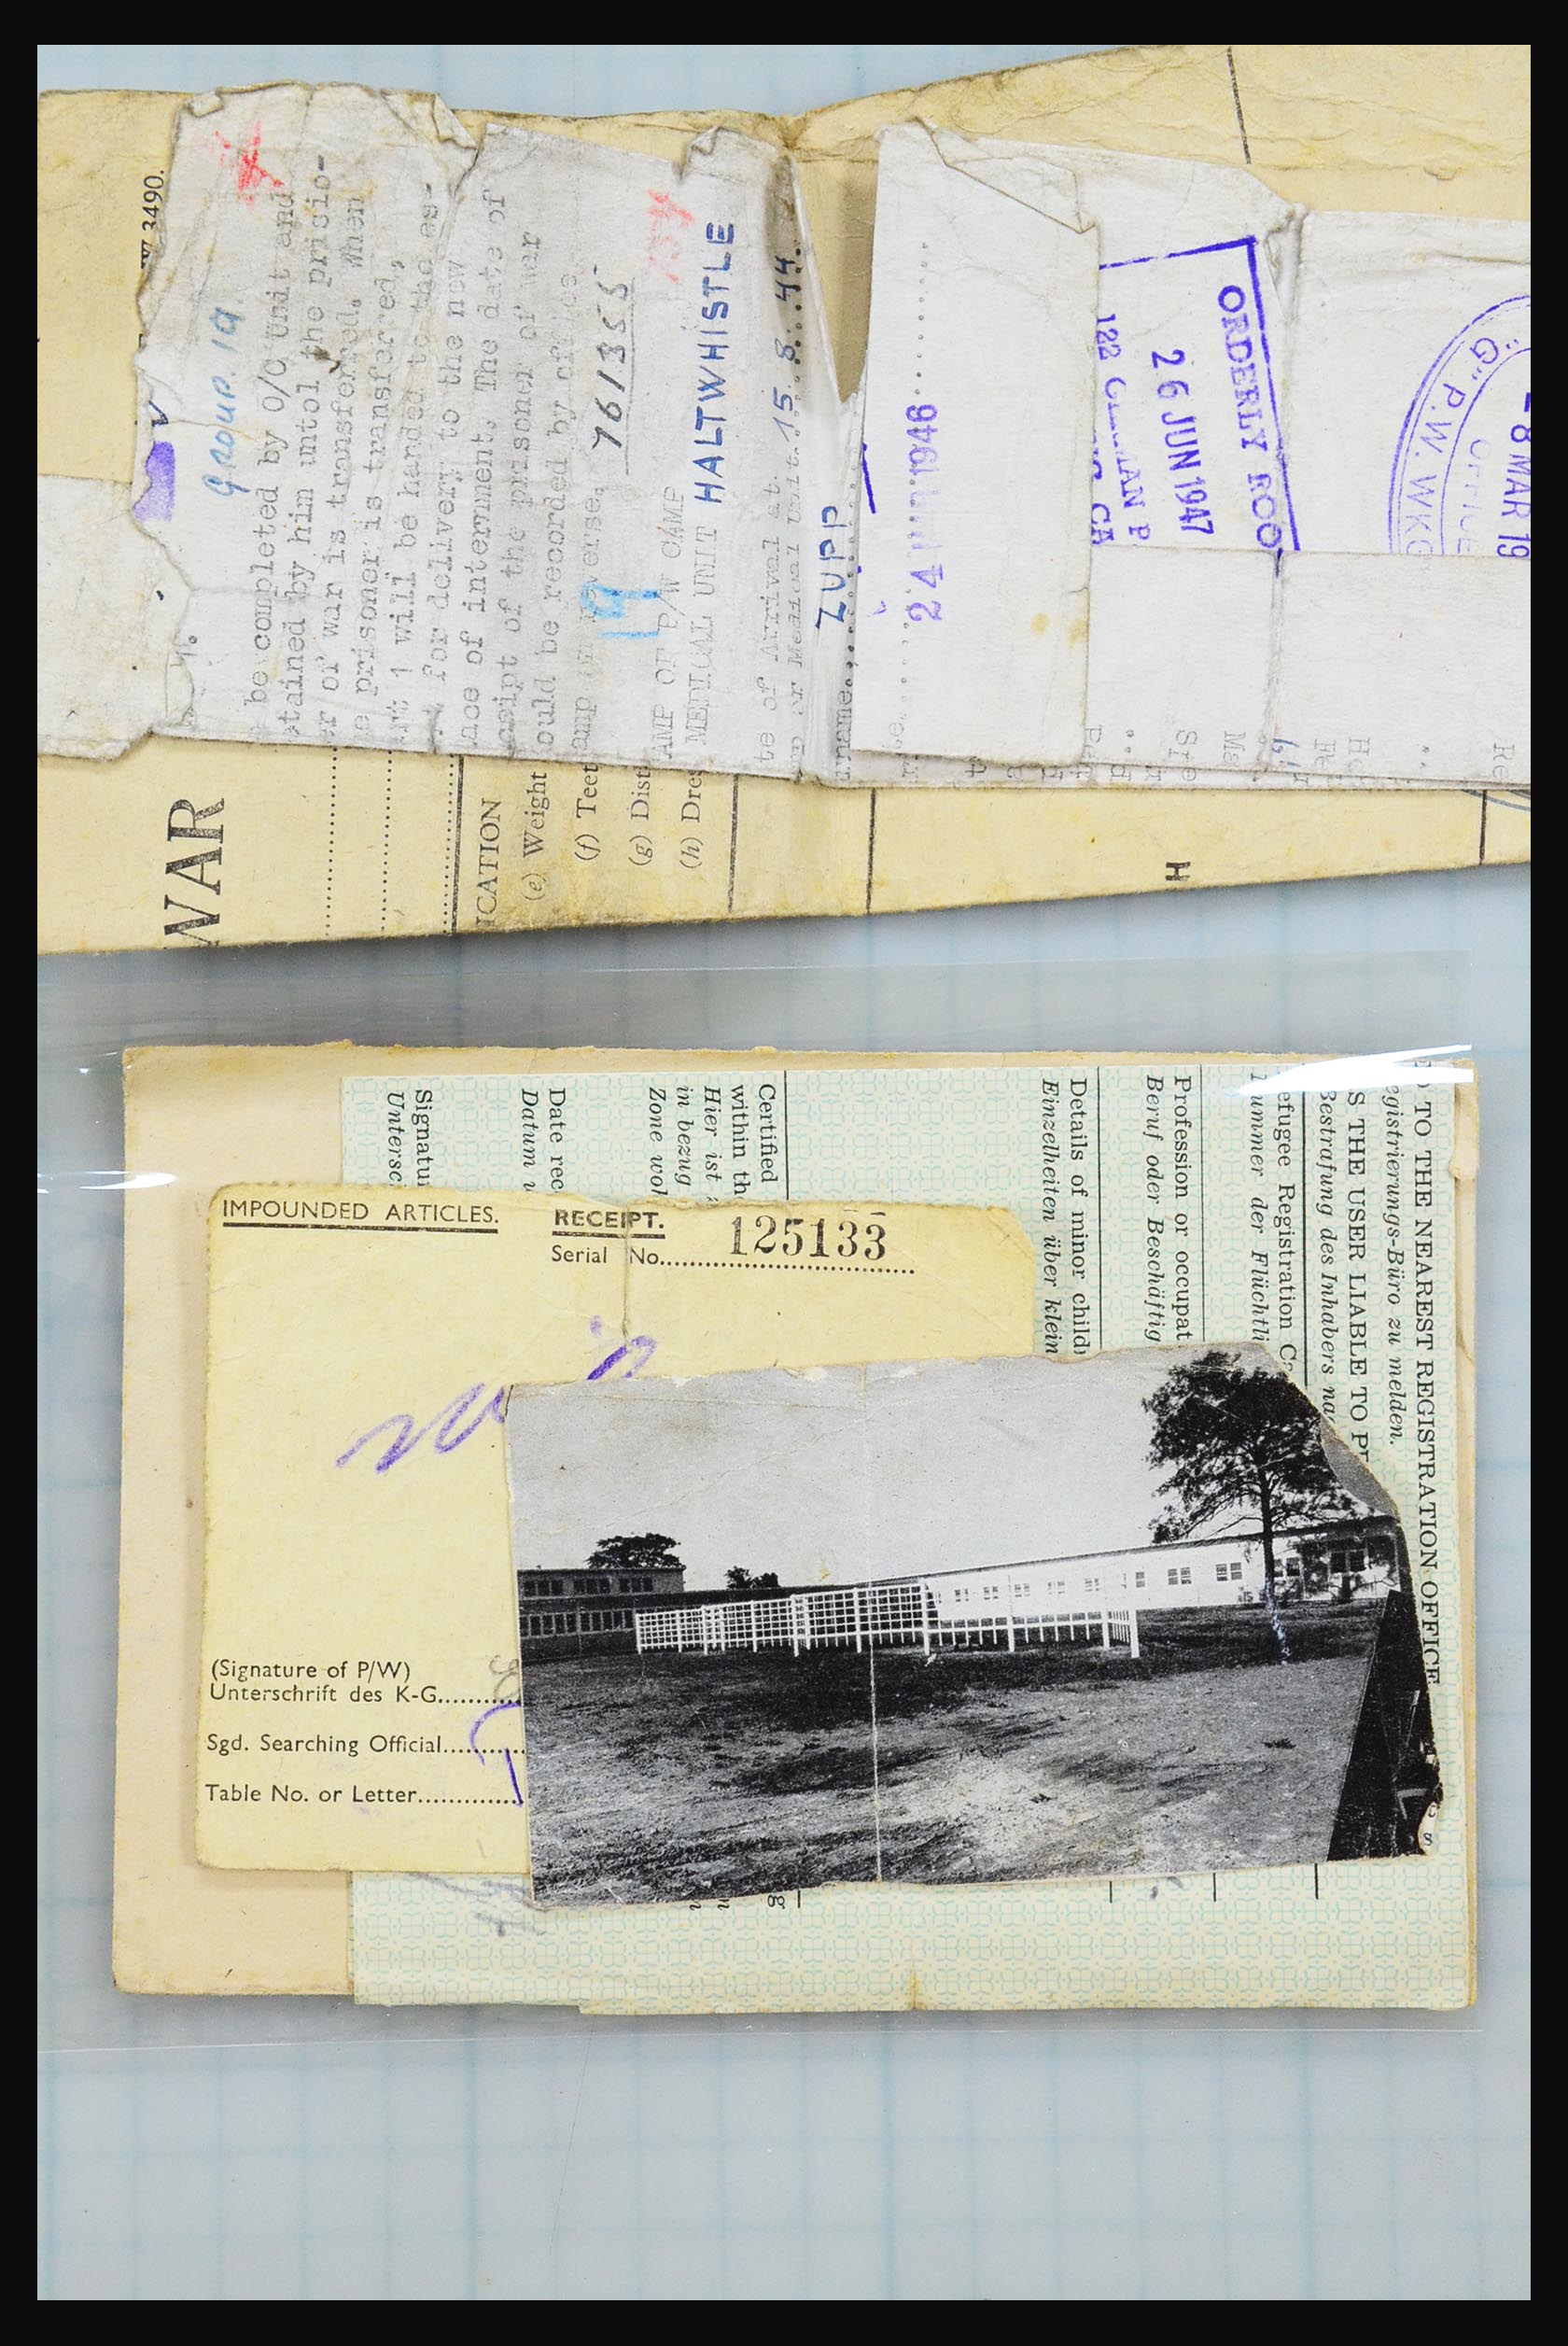 W 3490.
Group. 19.
be completed by O/C Unit and
tained by him untol the prisio-
r of war is transferred. When
e prisoner is transferred,
rt 1 will be handed to the es-
t for delivery to the new
ace of internment. The date of
ceipt of the prisoner of war
ould be recorded by office
amp reverse.
761355
19
AMP OF P/W CAMP
MEDICAL UNIT HALTWHISTLE
te of Arrival at 15. 8. 44.
or Medical Unit
rname ZUPP
24 1946
ORDERLY ROO
26 JUN 1947
122 G MAN P.
"G" P.W. WKG
OFFICE
8 MAR 19
WAR
ICATION
(e) Weight
(f) Teet
(g) Dist
(h) Dres
H
TO THE NEAREST REGISTRATION OFFICE
egistrierungs-Büro zu melden.
S THE USER LIABLE TO P
Bestrafung des Inhabers na
efugee Registration Ca
ummer der Flüchtli
Profession or occupat
Beruf oder Beschäftig
Details of minor child
Einzelheiten über klein
Certified
within th
Hier ist
in bezug
Zone wol
Date rec
Datum
Signatu
Untersc
IMPOUNDED ARTICLES.
RECEIPT.
Serial No. 125133
(Signature of P/W)
Unterschrift des K-G
Sgd. Searching Official
Table No. or Letter